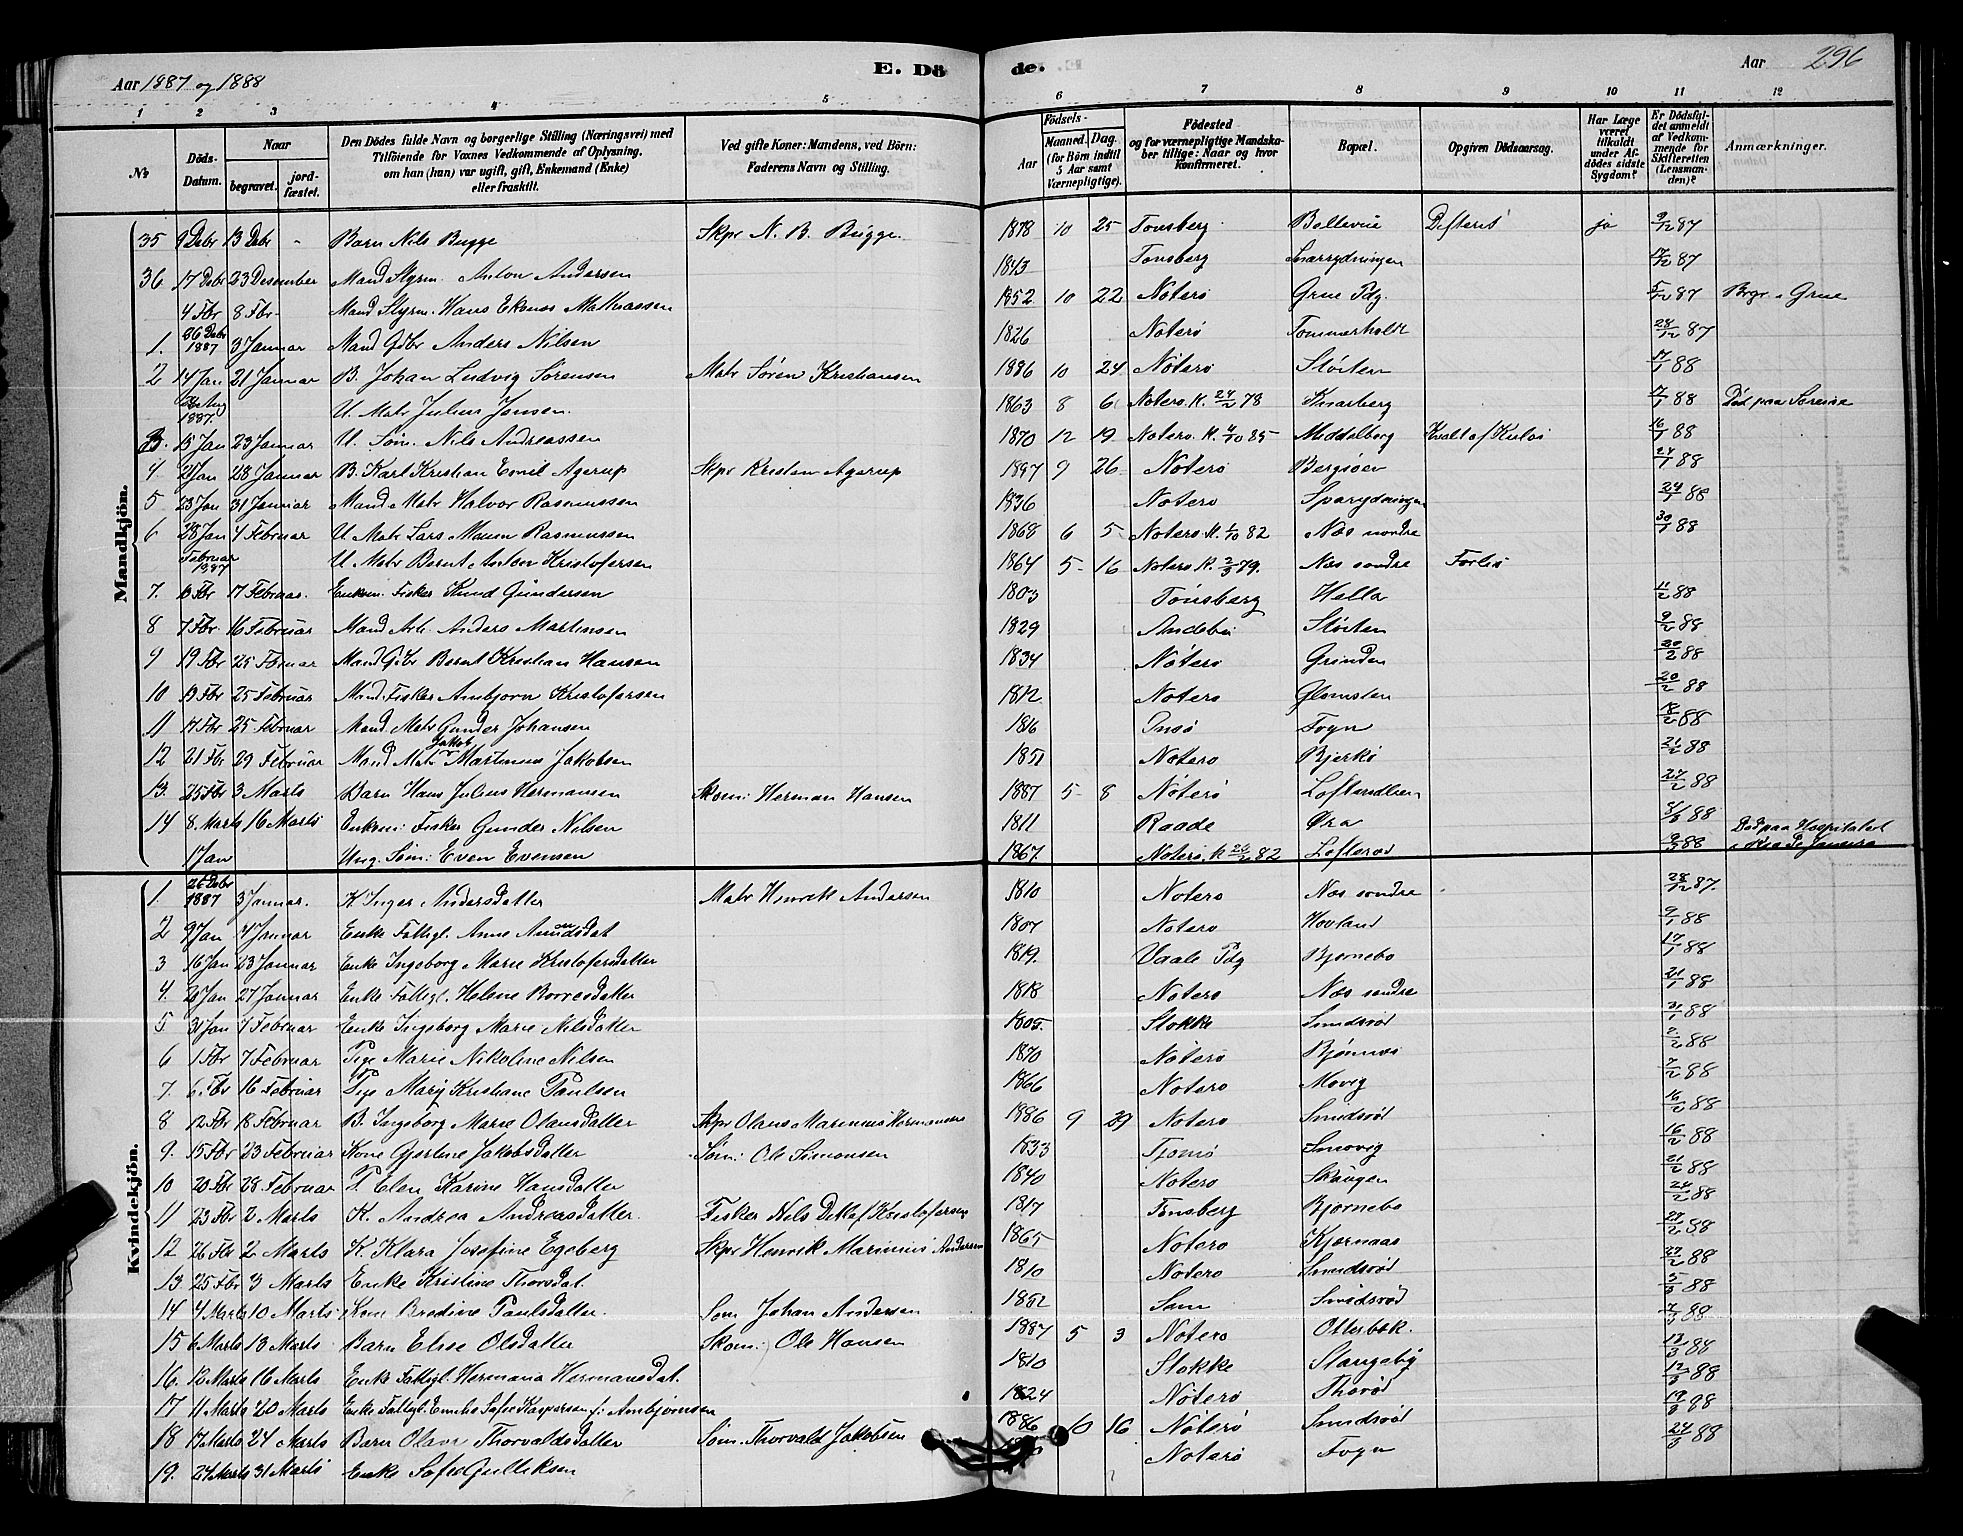 Aar 1887 og 1888
E. Dö
de.
Aar
296
1 2 3 4 5 6 7 8 9 10 11 12
No
Döds-Datum.
Naar
begravet.
jord-fæstet.
Den Dödes fulde Navn og borgerlige Stilling (Næringsvei) med
Tilföiende for Voxnes Vedkommende af Oplysning,
om han (hun) var ugift, gift, Enkemand (Enke)
eller fraskilt.
Ved gifte Koner: Mandens, ved Börn:
Faderens Navn og Stilling.
Födsels-
Aar
Maaned. Dag.
(for Börn indtil
5 Aar samt
Værnepligtige).
Födested
og for værnepligtige Mandska-
ber tillige: Naar og hvor
Konfirmeret.
Bopæl.
Opgiven Dödsaarsag.
Har Læge
været
tilkaldt
under Af-
dödes sidste
Sygdom?
Er Dödsfal-
det anmeldt
af Vedkom-
mende for
Skifteretten
(Lensman-
den)?
Anmærkninger.
Mandkjön.
35 9 Debr 13 Debr - Barn Nils Bugge Skpr N. B. Bugge. 1878 10 25 Tonsberg Bellevue Difterit ja 9/12 87
36 17 Debr 23 Desember Mand Styrm. Anton Andersen 1843 Tonsberg 17/12 87
4 Fbr 8 Fbr Mand Styrm. Hans Mathiassen 1852 10 22 Noterö Grue Pdg. 5/12 87 Begr. i Grue
1. 26 Debr 1887 3 Januar Mand Gdbr Anders Nilsen 1826 Noterö Tommerholt 28/12 87
2 14 Jan 21 Januar B. Johan Ludvig Sörensen Matr Sören Kristiansen 1886 10 24 Nöterö Stöiten 17/1 88
1887. U. Matr Julius Jansen. 1863 8 6 Notero. K. 24/2 78 Knarberg 7/1 88 Död paa
3. 15 Jan 23 Januar U. Söm. Nils Andreassen 1870 12 19 Notero. K. 4/10 85 Middelborg Kvalt af Kulos 16/1 88
4. 21 Jan 28 Januar B. Karl Kristian Emil Agerup Skpr Kristen Agerup 1887 9 26 Noterö Bergsöen 24/1 88
5 23 Jan 31 Januar Mand Matr Halvor Rasmussen 1836 Notero 24/1 88
6 28 Jan 4 Februar U Matr Lars Rasmussen 1868 6 5 Notero. K. 1/10 82 Næs nordre 30/1 88
Februar 1887 U. Matr Bernt Anton Kristofersen 1864 5 16 Notero K. 2/3 79. Næs sondre Forlis
7. 17 Februar. Enkem. Fisker Knud Gundersen 1803 Tönsberg Hella 11/2 88
8 7 Fbr. 16 Februar Mand Arb. Anders Martinsen 1829 Andebu Stöiten 9/2 88
9 19 Fbr 25 Februar Mand Gdbr Bernt Kristian Hansen 1834 Nöterö Grinden 20/2 88
10 19 Fbr 25 Februar Mand. Fisker Anbjorn Kristofersen 1812 Notero Glomsten 20/2 88
11 17 Fbr 25 Februar Mand Matr Gunder Johansen 1816 Onsö Fogn 18/2 88
12 21 Fbr 29 Februar Mand Matr Jakob Martinius Jakobsen 1851 Notero Bjerkö 21/2 88
13. 25 Fbr 3 Marts Barn Hans Julius Hermansen Skom: Herman Hansen 1887 5 8 Nöterö 27/2 88
14 8. Marts 16 Marts Enkem: Fisker Gunder Nilsen 1811 Raade Ora 8/3 88
17 Jan Ung. Söm: Even Evensen 1867. Noterö. K 82 Lofterod 88 Död paa Hospitalet i Rio De Janeiro
Kvindekjön.
1. 26 Debr 1887 3 Januar. K Inger Andersdatter Matr Henrik Andersen 1810 Notero Næs sondre 28/12 87.
2 9 Jan Januar Enke Fattigl. Anne Amundsdat 1807 Notero Hovland 9/1 88
3 16 Jan 23 Januar Enke Ingeborg Marie Kristofersdatter 1819. Vaale Pdg Bjornebo 17/1 88
4. 20 Jan 27 Januar Enke Fattigl. Helene Borresdatter 1818 Notero Næs sondre 21/1 88
5 31 Jan 7 Februar Enke Ingeborg Marie Nilsdatter 1805. Stokke Smidsröd 31/1 88
6 1 Fbr 7 Februar Pige Marie Nikoline Nilsen 1870 Nöterö Bjönnes 2/2 88
7. 6. Fbr 16 Februar Pige Mary Kristiane Paulsen 1866 Notero Movig 7/2 88
8 12 Fbr 18 Februar B. Ingeborg Marie Olausdatter Skpr Olaus Marinius Hermansen 1886 9 29 Notero Smidsröd 16/2 88
9. 15 Fbr 23 Februar Kone Gjertine Jakobsdatter Söm: Ole Simonsen 1833 Tjomö Smovig 16/2 88
10 20 Fbr 28 Februar P. Elen Karine Hansdatter 1840 Notero Skaugen 21/2 88
11 23 Fbr 2 Marts K. Andrea Andreasdatter. Fisker Nils Detlef Kristofersen 1817 Tonsberg Bjornebo 24/2 88
12 26 Fbr 2 Marts K. Klara Josefine Egeberg Skpr Henrik Marinius Andersen 1865 Notero Kjærnaas 27/2 88
13 25 Fbr 3 Marts Enke Kristine Thorsdat. 1810 Notero Smidsröd 27/2 88
14 4 Marts 10 Marts Kone Bredine Paulsdatter. Som Johan Andersen 1852 Sem Smidsröd 5/3 88
15 6 Marts 13 Marts Barn Elise Olsdatter Skom: Ole Hansen 1887 5 3 Notero Otterbæk. 7/3 88
16. 12 Marts 16 Marts Enke Fattigl. Hermana Hermansdat. 1810 Stokke Stangeby 13/3 88
17 11 Marts 20 Marts Enke Fattigl. Emelie Sofie Kaspersen f: Anbjornsen 1824 Nöterö Thoröd 12/3 88
18 17 Marts 24 Marts Barn Olava Thorvaldsdatter Söm. Thorvald Jakobsen 1886 10 16 Nöterö Smidsröd 19/3 88
19. 24 Marts 31 Marts Enke Sofie Gulliksen Noterö Fogn 24/3 88